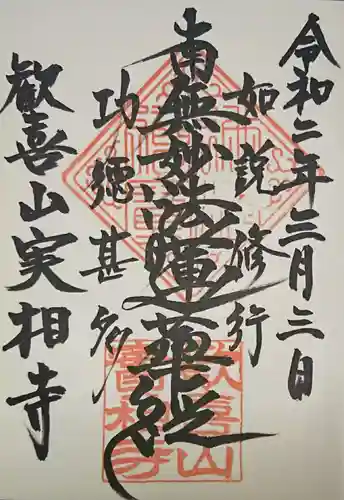 令和二年三月三日
如説修行
南無妙法蓮華経
功徳甚多
歓喜山実相寺
歓喜山
實相寺